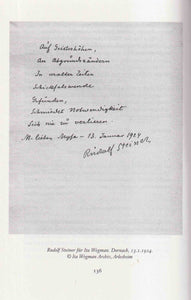 Auf Geisteshöhen,
An Abgrundsrändern
In uralten Zeiten
Schicksalswende
Gefunden,
Schmiedet Notwendigkeit
Sich nie zu verlieren.
M. lieben 13. Januar 1924
Rudolf Steiner
Rudolf Steiner für Ita Wegman. Dornach, 13.1.1924.
© Ita Wegman Archiv, Arlesheim
136